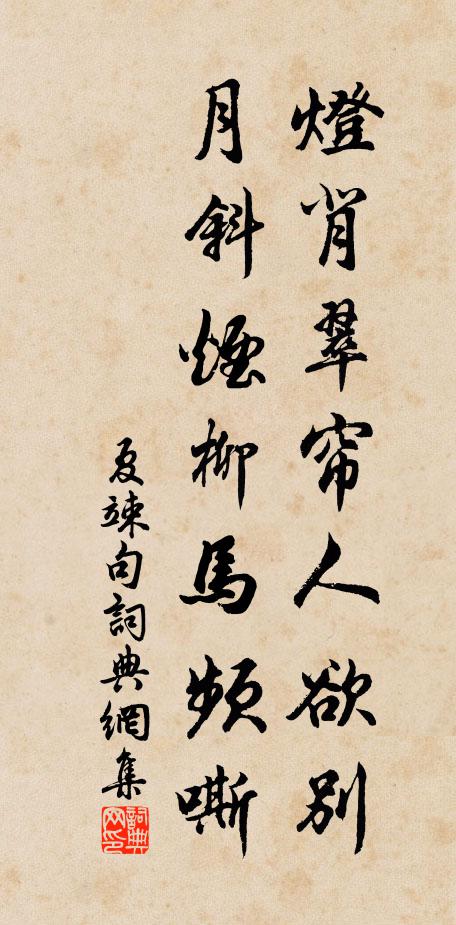 燈背翠帘人欲別
月斜煙柳馬頻嘶
夏竦句詞典網集
詞典网印